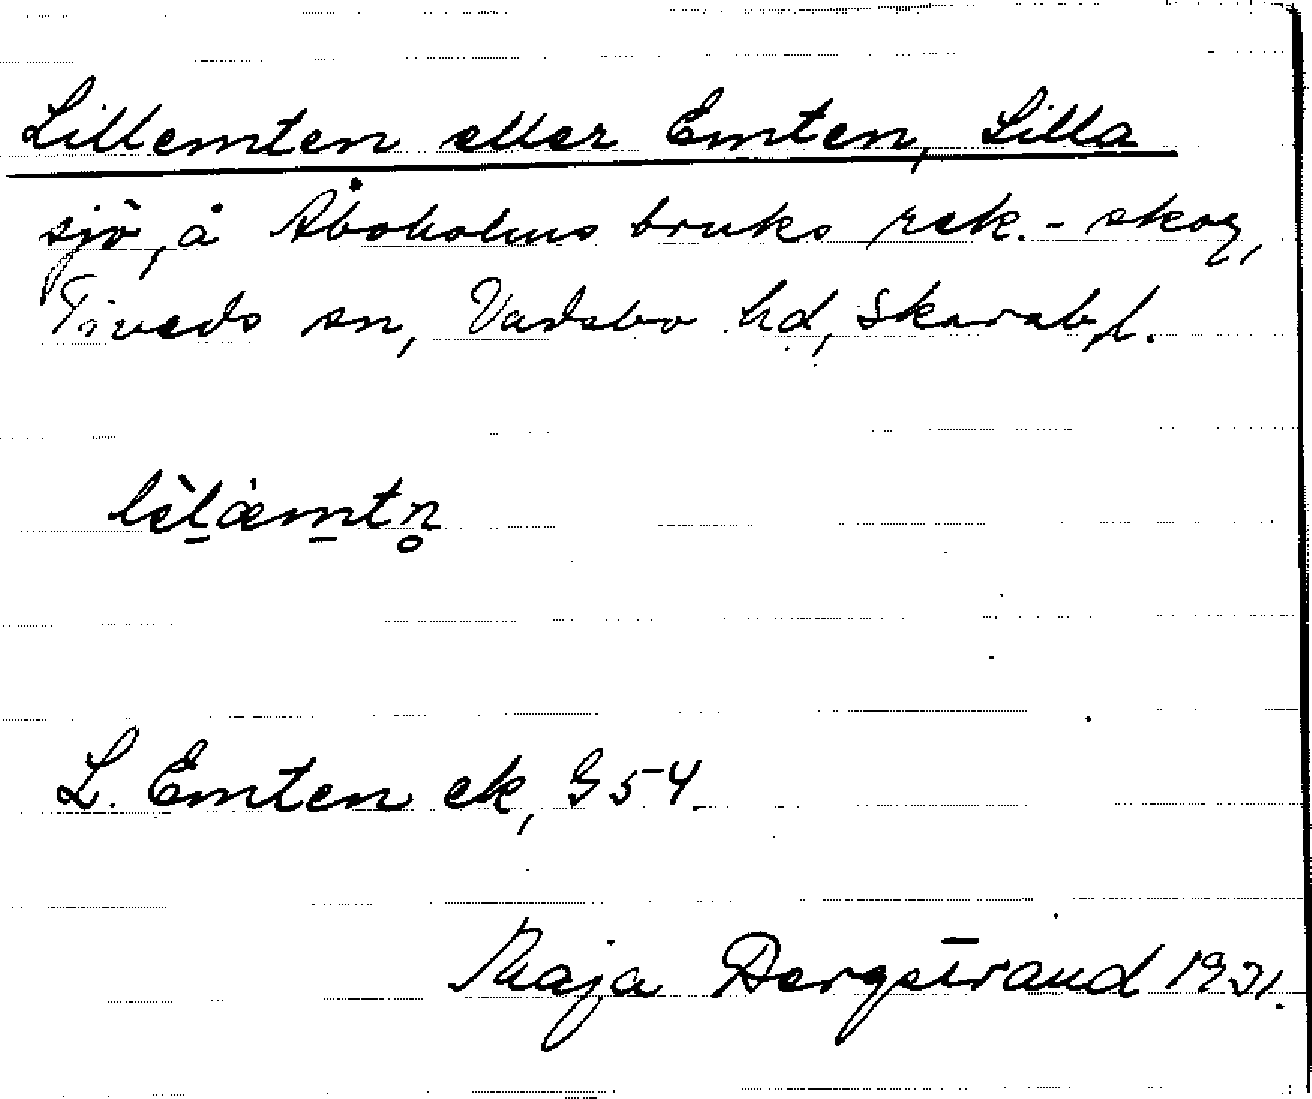 Lillemten eller Emten, Lilla
sjö, å Åboholms bruks rek.-skog,
Tiveds sn, Vadsbo hd, Skarab. l.
lìlæmtn̥
L. Emten ek, G 54
Maja Bergstrand 1931.